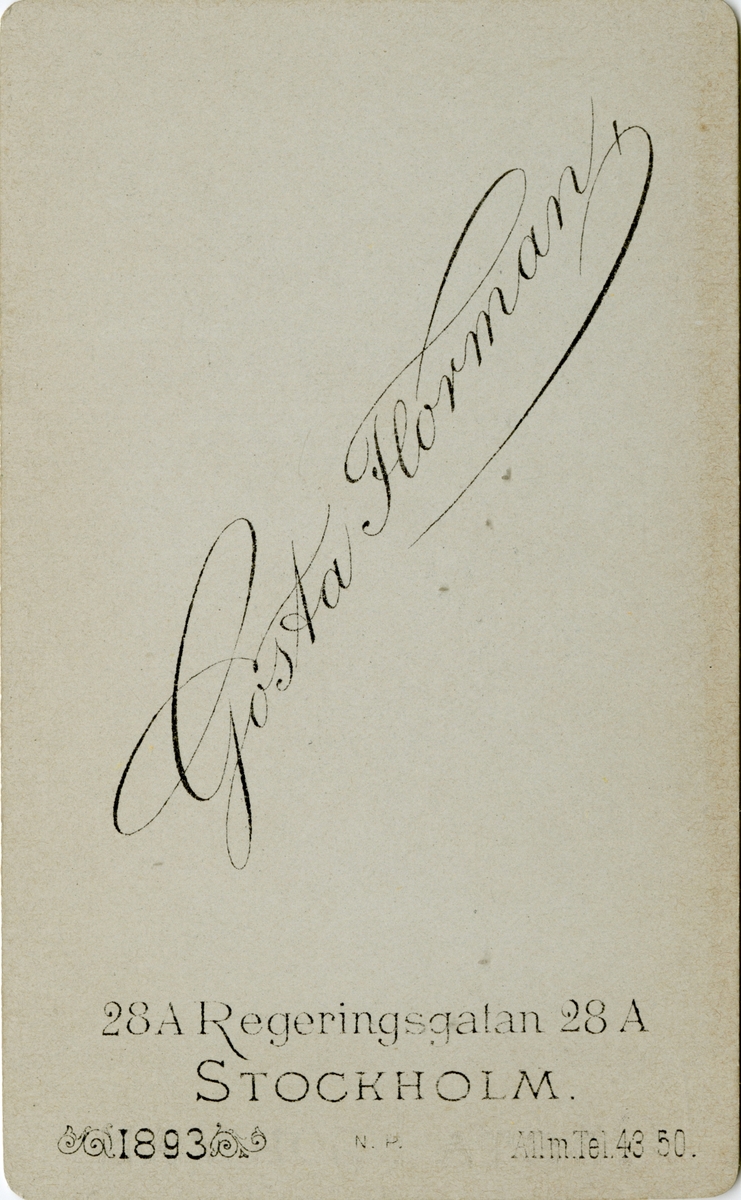 Gösta Florman
28A Regeringsgatan 28 A
STOCKHOLM.
1893 N. P. Allm. Tel. 43 50.